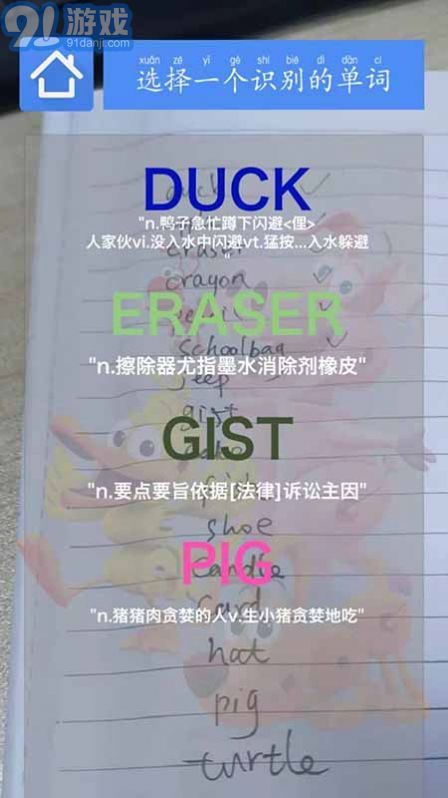 91游戏
91danji.com
xuǎn zé yī gè shí bié dí dān cí
选择一个识别的单词
DUCK
duck
"n.鸭子急忙蹲下闪避<俚>
人家伙vi.没入水中闪避vt.猛按...入水躲避
"
eraser
crayon
ERASER
schoolbag
"n.擦除器尤指墨水消除剂橡皮"
jeep
gist
GIST
"n.要点要旨依据[法律]诉讼主因"
shoe
PIG
candie
"n.猪猪肉贪婪的人v.生小猪贪婪地吃"
hat
pig
turtle